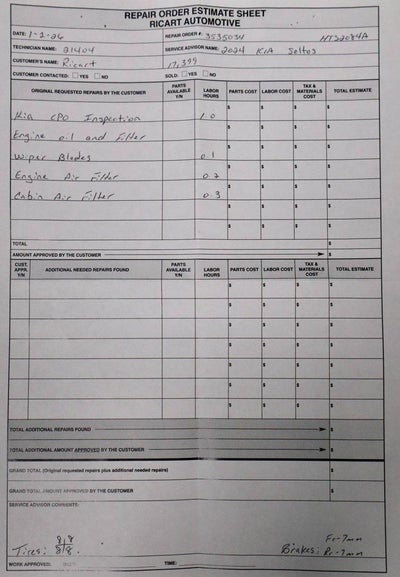 REPAIR ORDER ESTIMATE SHEET
RICART AUTOMOTIVE
DATE: 1-2-26 REPAIR ORDER #: 3535034 HT32084A
TECHNICIAN NAME: 21404 SERVICE ADVISOR NAME: 2024 KIA Seltos
CUSTOMER'S NAME: Ricart 17,399
CUSTOMER CONTACTED: YES NO SOLD: YES NO
ORIGINAL REQUESTED REPAIRS BY THE CUSTOMER PARTS AVAILABLE Y/N LABOR HOURS PARTS COST LABOR COST TAX & MATERIALS COST TOTAL ESTIMATE
Kia CPO Inspection 1.0 $ $ $ $
Engine oil and Filter $ $ $ $
Wiper Blades 0.1 $ $ $ $
Engine Air Filter 0.2 $ $ $ $
Cabin Air Filter 0.3 $ $ $ $
$ $ $ $
$ $ $ $
TOTAL $
AMOUNT APPROVED BY THE CUSTOMER $
CUST. APPR. Y/N ADDITIONAL NEEDED REPAIRS FOUND PARTS AVAILABLE Y/N LABOR HOURS PARTS COST LABOR COST TAX & MATERIALS COST TOTAL ESTIMATE
$ $ $ $
$ $ $ $
$ $ $ $
$ $ $ $
$ $ $ $
$ $ $ $
$ $ $ $
TOTAL ADDITIONAL REPAIRS FOUND $
TOTAL ADDITIONAL AMOUNT APPROVED BY THE CUSTOMER $
GRAND TOTAL (Original requested repairs plus additional needed repairs) $
GRAND TOTAL AMOUNT APPROVED BY THE CUSTOMER $
SERVICE ADVISOR COMMENTS:
Tires: 8/8 8/8 Brakes: Fr-7mm Rr-7mm
WORK APPROVED: TIME: